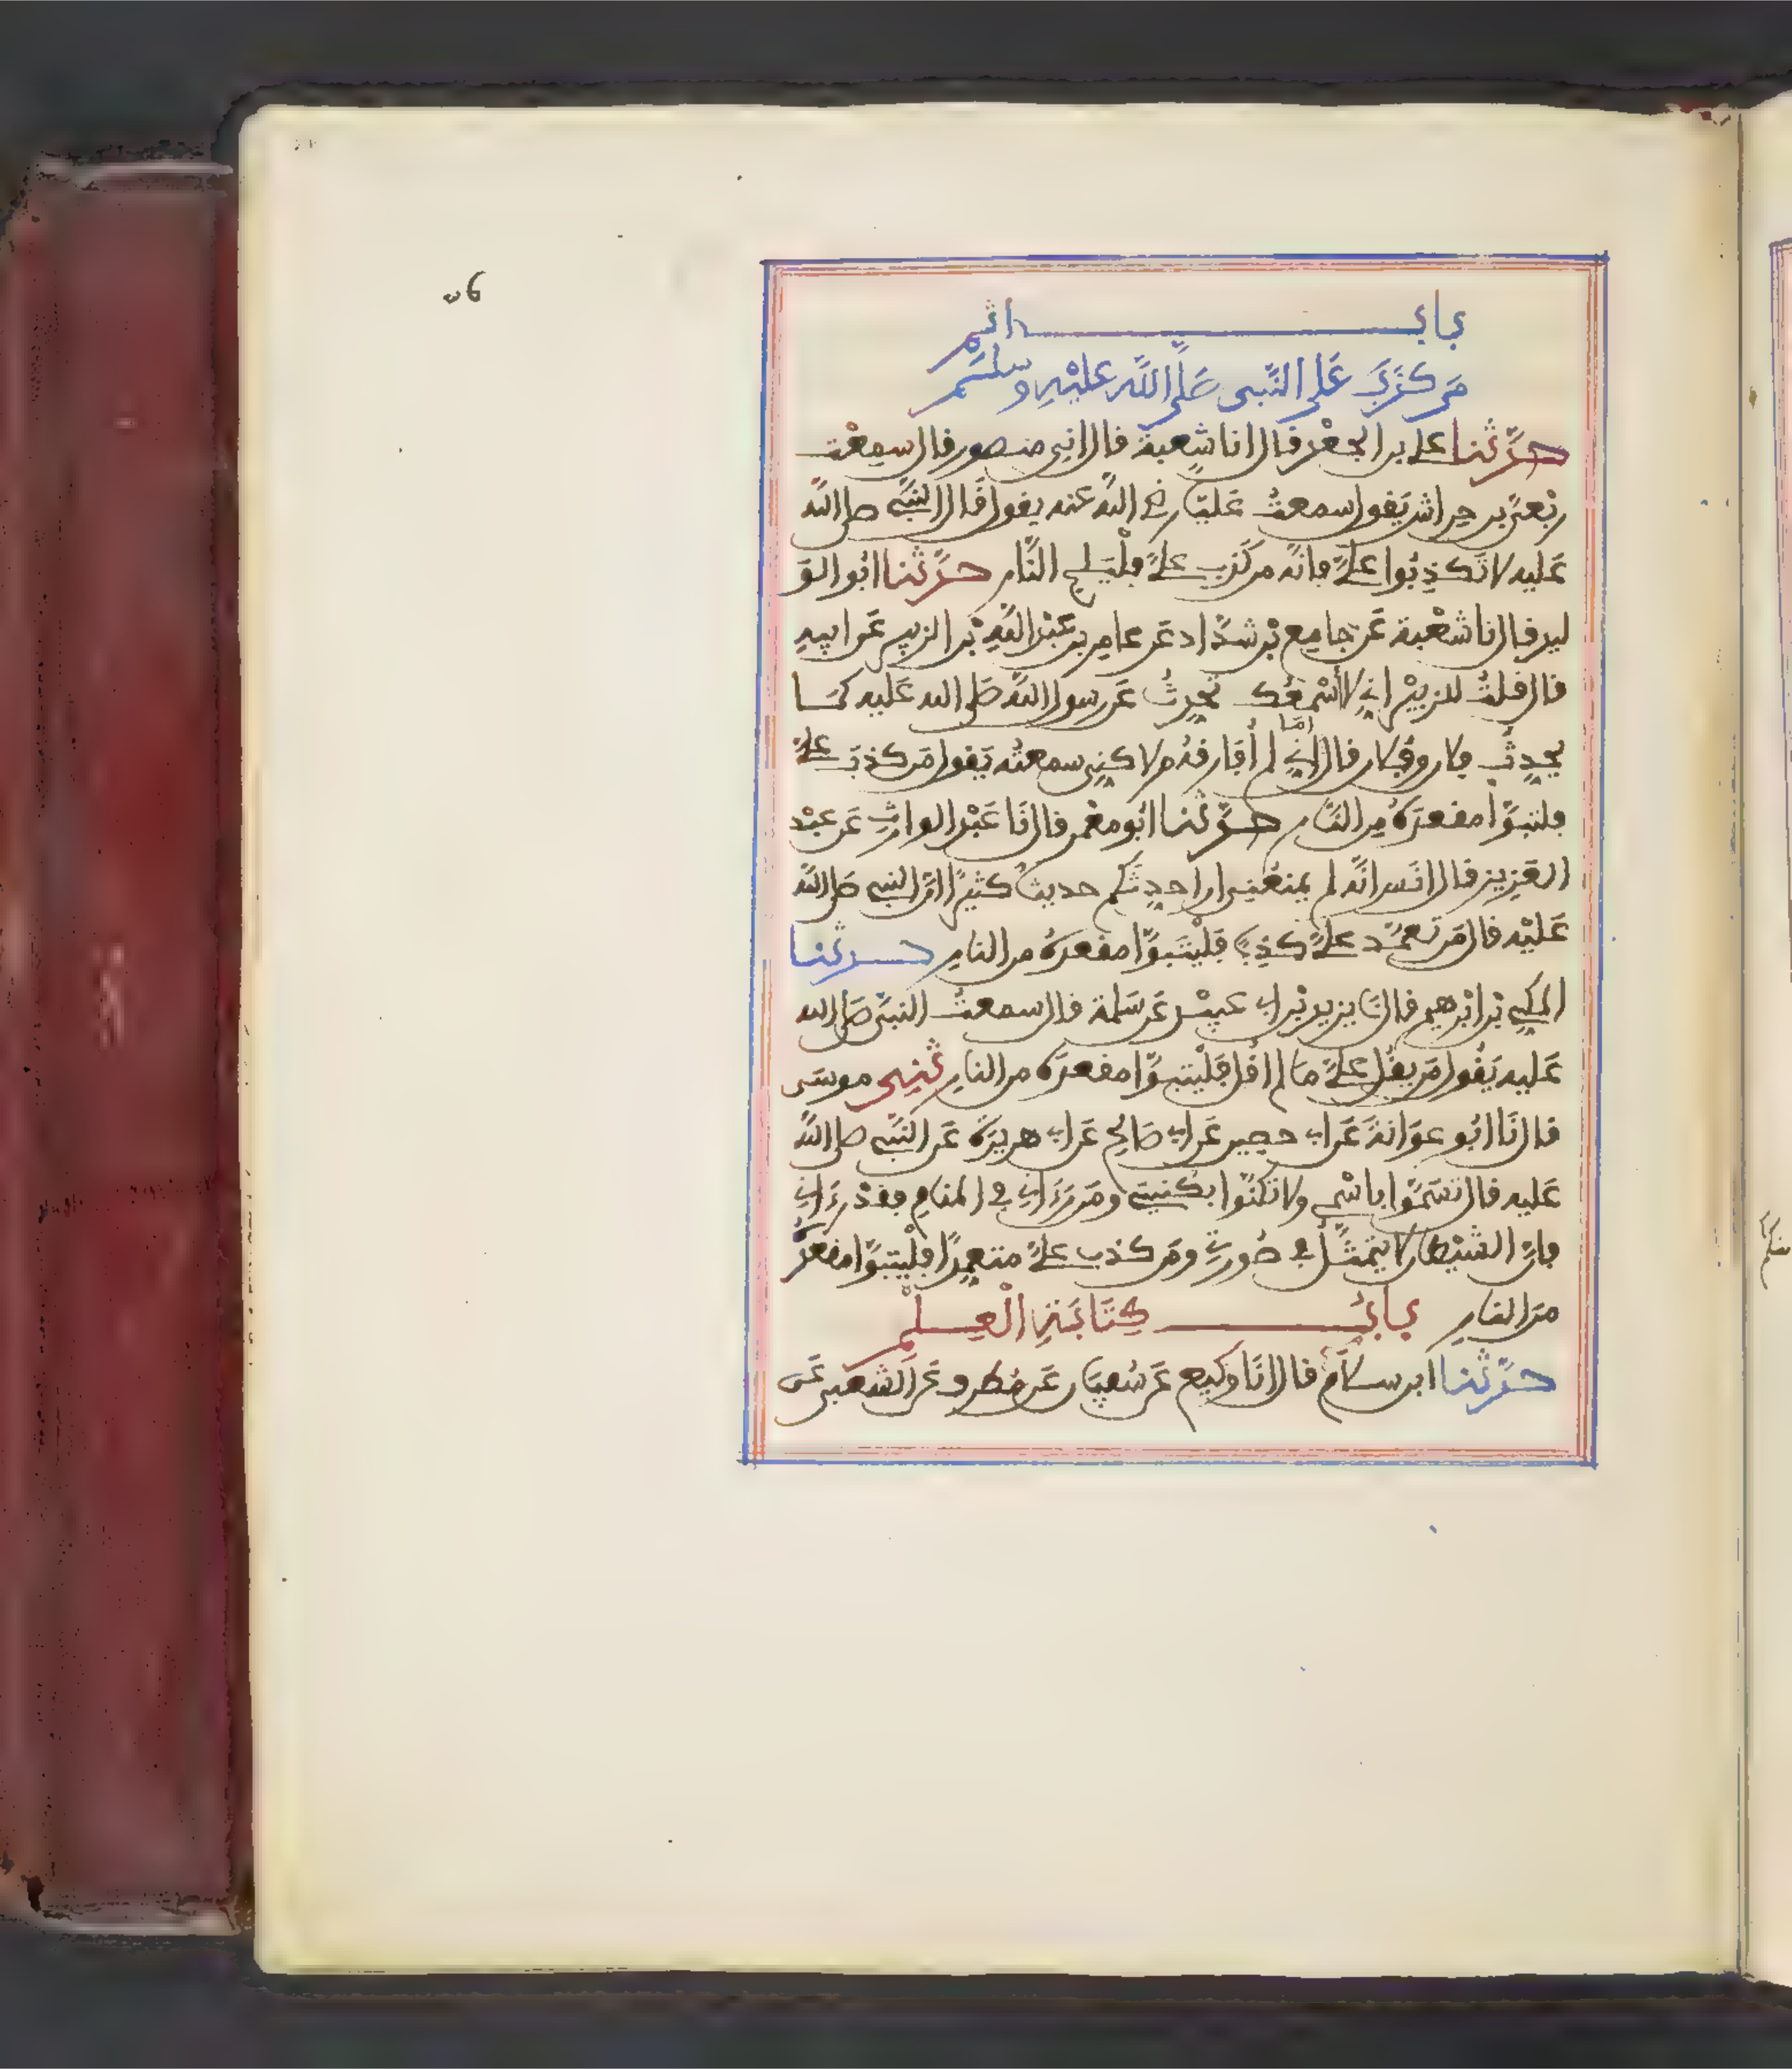 باب اثم
من كذب على النبي صلى الله عليه وسلم
حدثنا على بن الجعد قال انا شعبة قال انى منصور قال سمعت
ربعى بن حراش يقول سمعت عليا رضى الله عنه يقول قال النبى صلى الله
عليه لا تكذبوا على فانه من كذب على فليلج النار حدثنا ابو الو
ليد قال نا شعبة عن جامع بن شداد عن عامر بن عبد الله بن الزبير عن ابيه
قال قلت للزبير انى لا اسمعك تحدث عن رسول الله صلى الله عليه كما
يحدث فلان وفلان قال اما انى لم أفارقه ولاكنى سمعته يقول من كذب على
فليتبوأ مقعده من النار حدثنا ابو معمر قال نا عبد الوارث عن عبد
العزيز قال انس انه لم يمنعنى ان احدثكم حديثا كثيرا ان النبى صلى الله
عليه قال من تعمد على كذبا فليتبوأ مقعده من النار حدثنا
المكى بن ابرهيم قال نا يزيد بن ابى عبيد عن سلمة قال سمعت النبى صلى الله
عليه يقول من يقل على ما لم اقل فليتبوأ مقعده من النار ثنى موسى
قال نا ابو عوانة عن ابى حصين عن ابى صالح عن ابى هريرة عن النبى صلى الله
عليه قال تسموا باسمى ولا تكنوا بكنيتى ومن رءانى فى المنام فقد رءانى
فان الشيطان لا يتمثل فى صورتى ومن كذب على متعمدا فليتبوأ مقعده
من النار باب كتابة العلم
حدثنا ابن سلام قال انا وكيع عن سفيان عن مطرف عن الشعبى عن